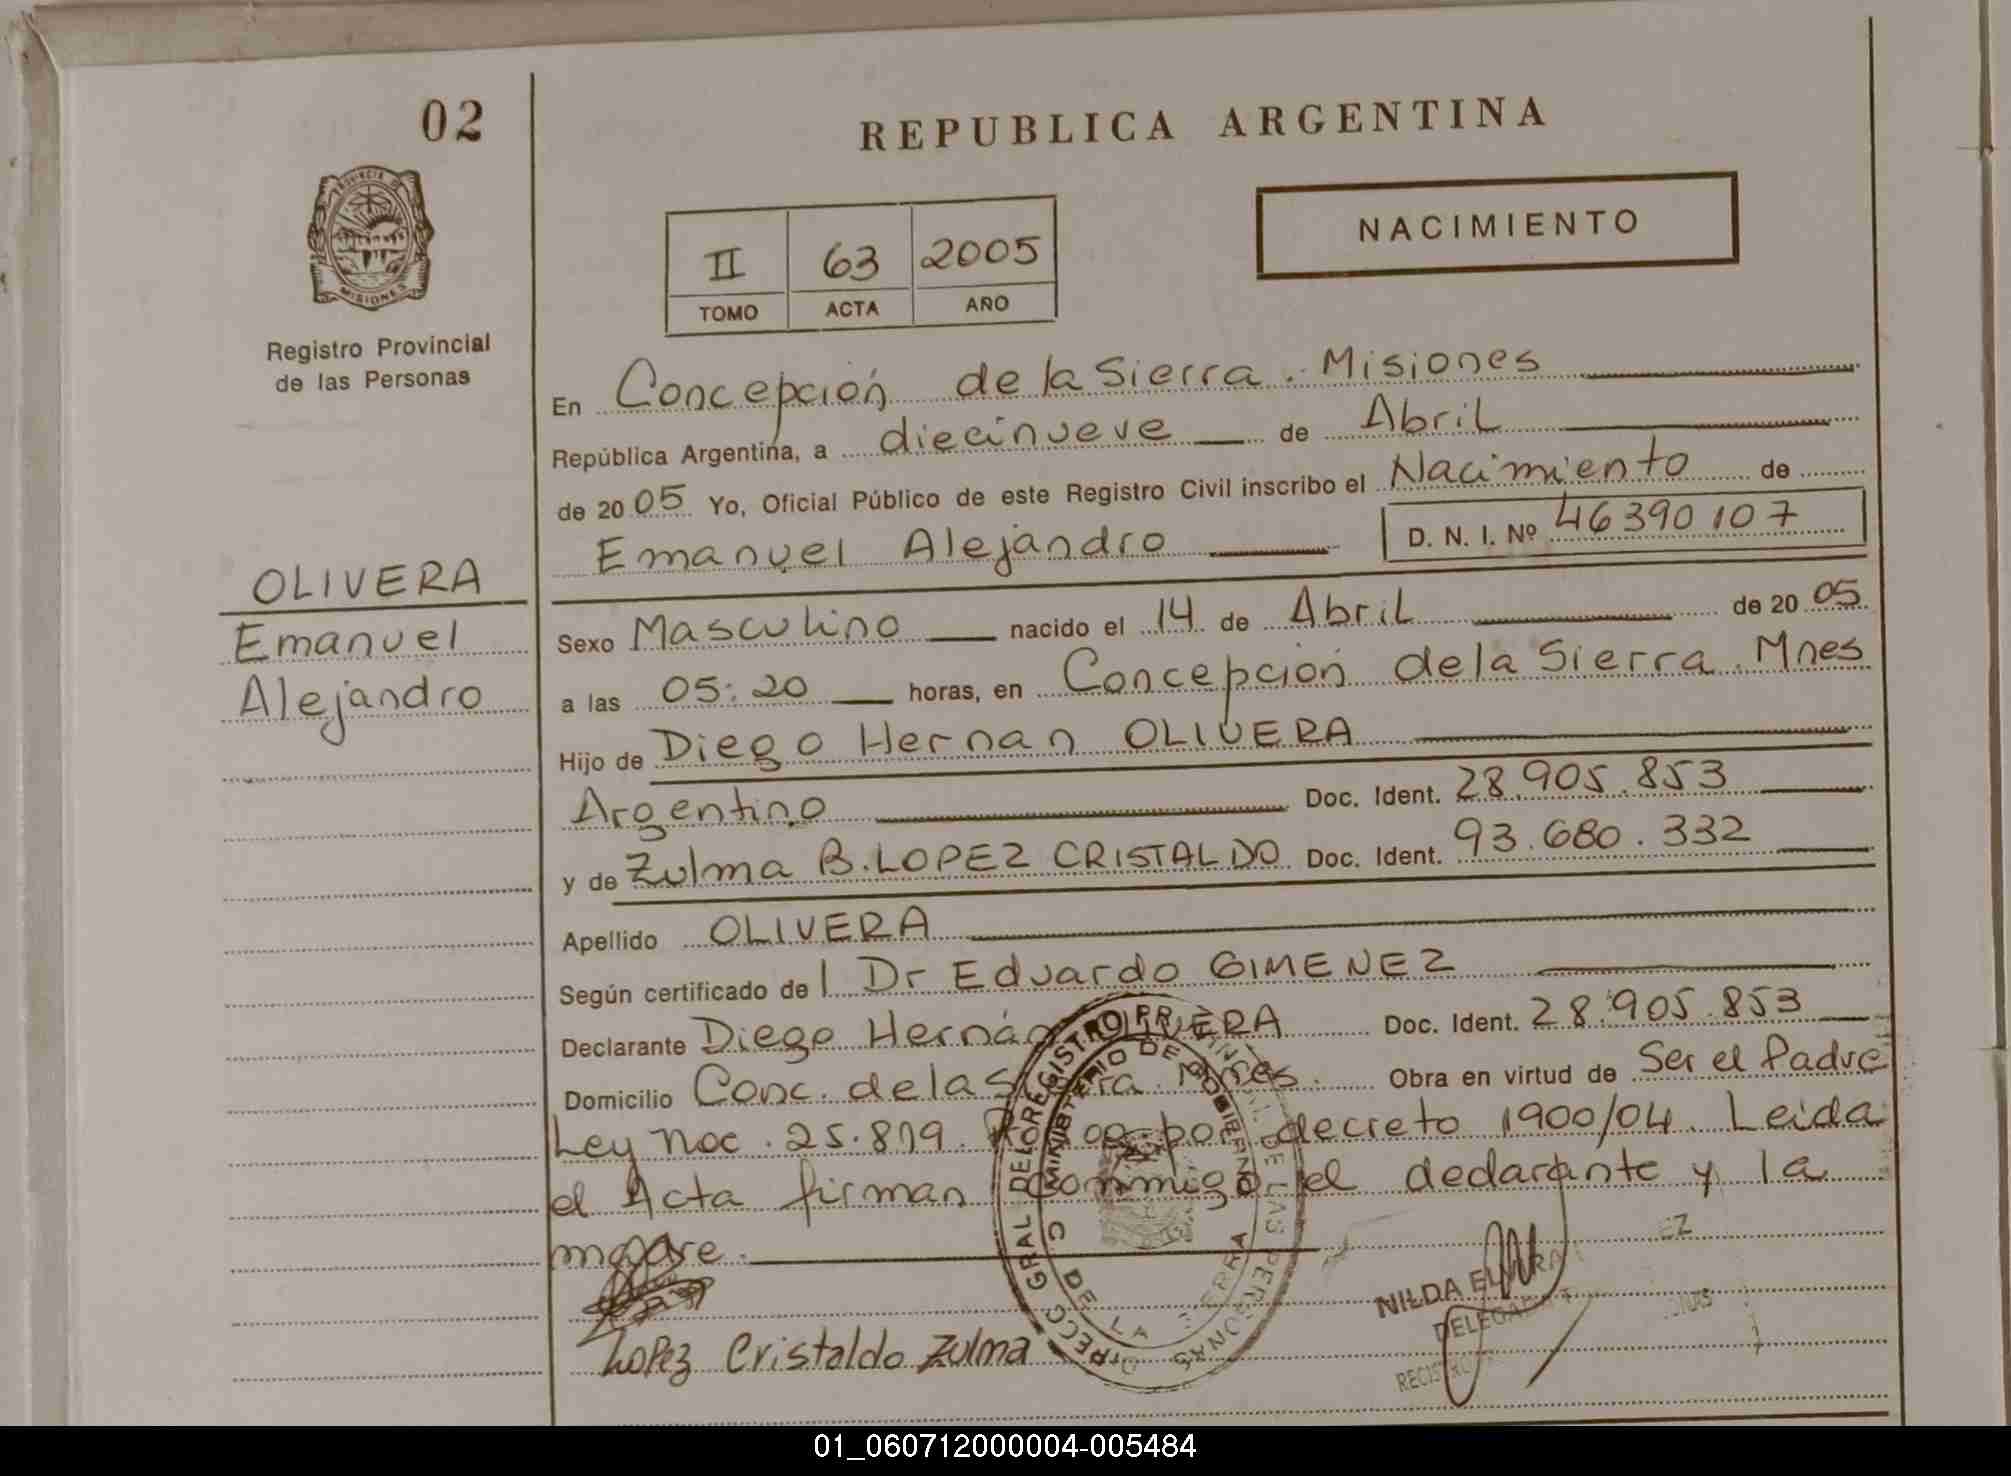 02
REPUBLICA ARGENTINA
PROVINCIA DE
MISIONES
Registro Provincial
de las Personas
NACIMIENTO
II 63 2005
TOMO ACTA AÑO
En Concepción de la Sierra. Misiones
República Argentina, a diecinueve de Abril
de 20 05 Yo, Oficial Público de este Registro Civil inscribo el Nacimiento de
Emanuel Alejandro D. N. I. Nº 46390107
OLIVERA
Emanuel
Alejandro
Sexo Masculino nacido el 14 de Abril de 20 05
a las 05:20 horas, en Concepción de la Sierra. Mnes
Hijo de Diego Hernan OLIVERA
Argentino Doc. Ident. 28.905.853
y de Zulma B. LOPEZ CRISTALDO Doc. Ident. 93.680.332
Apellido OLIVERA
Según certificado de l Dr Eduardo GIMENEZ
Declarante Diego Hernán OLIVERA Doc. Ident. 28.905.853
Domicilio Conc. de la Sierra. Mnes. Obra en virtud de Ser el Padre
Ley Nac. 25.819. por decreto 1900/04. Leida
el Acta firman conmigo el declarante y la
madre.
Lopez Cristaldo Zulma
DIRECC GRAL DEL REGISTRO DE LAS PERSONAS
MINISTERIO DE GOBIERNO
DE LA SIERRA
NILDA
01_060712000004-005484